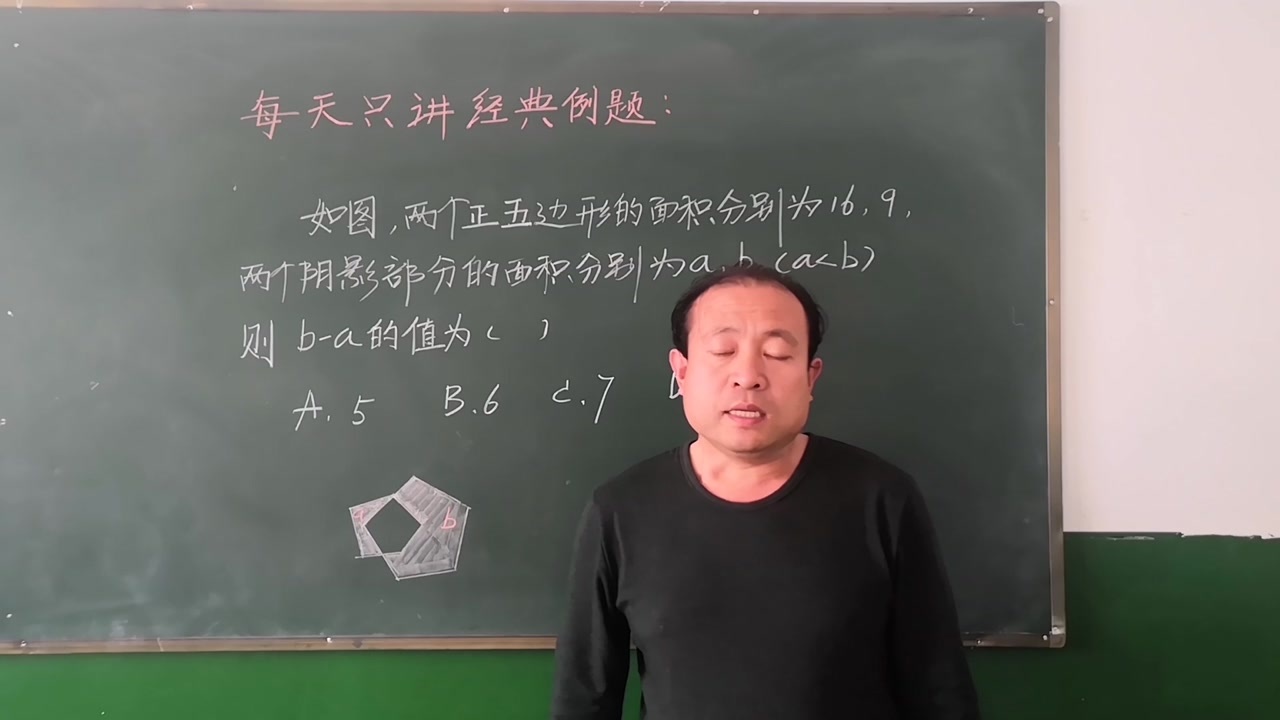 每天只讲经典例题:
如图,两个正五边形的面积分别为16,9,
两个阴影部分的面积分别为a,b(a<b)
则 b-a的值为( )
A.5 B.6 C.7
a b